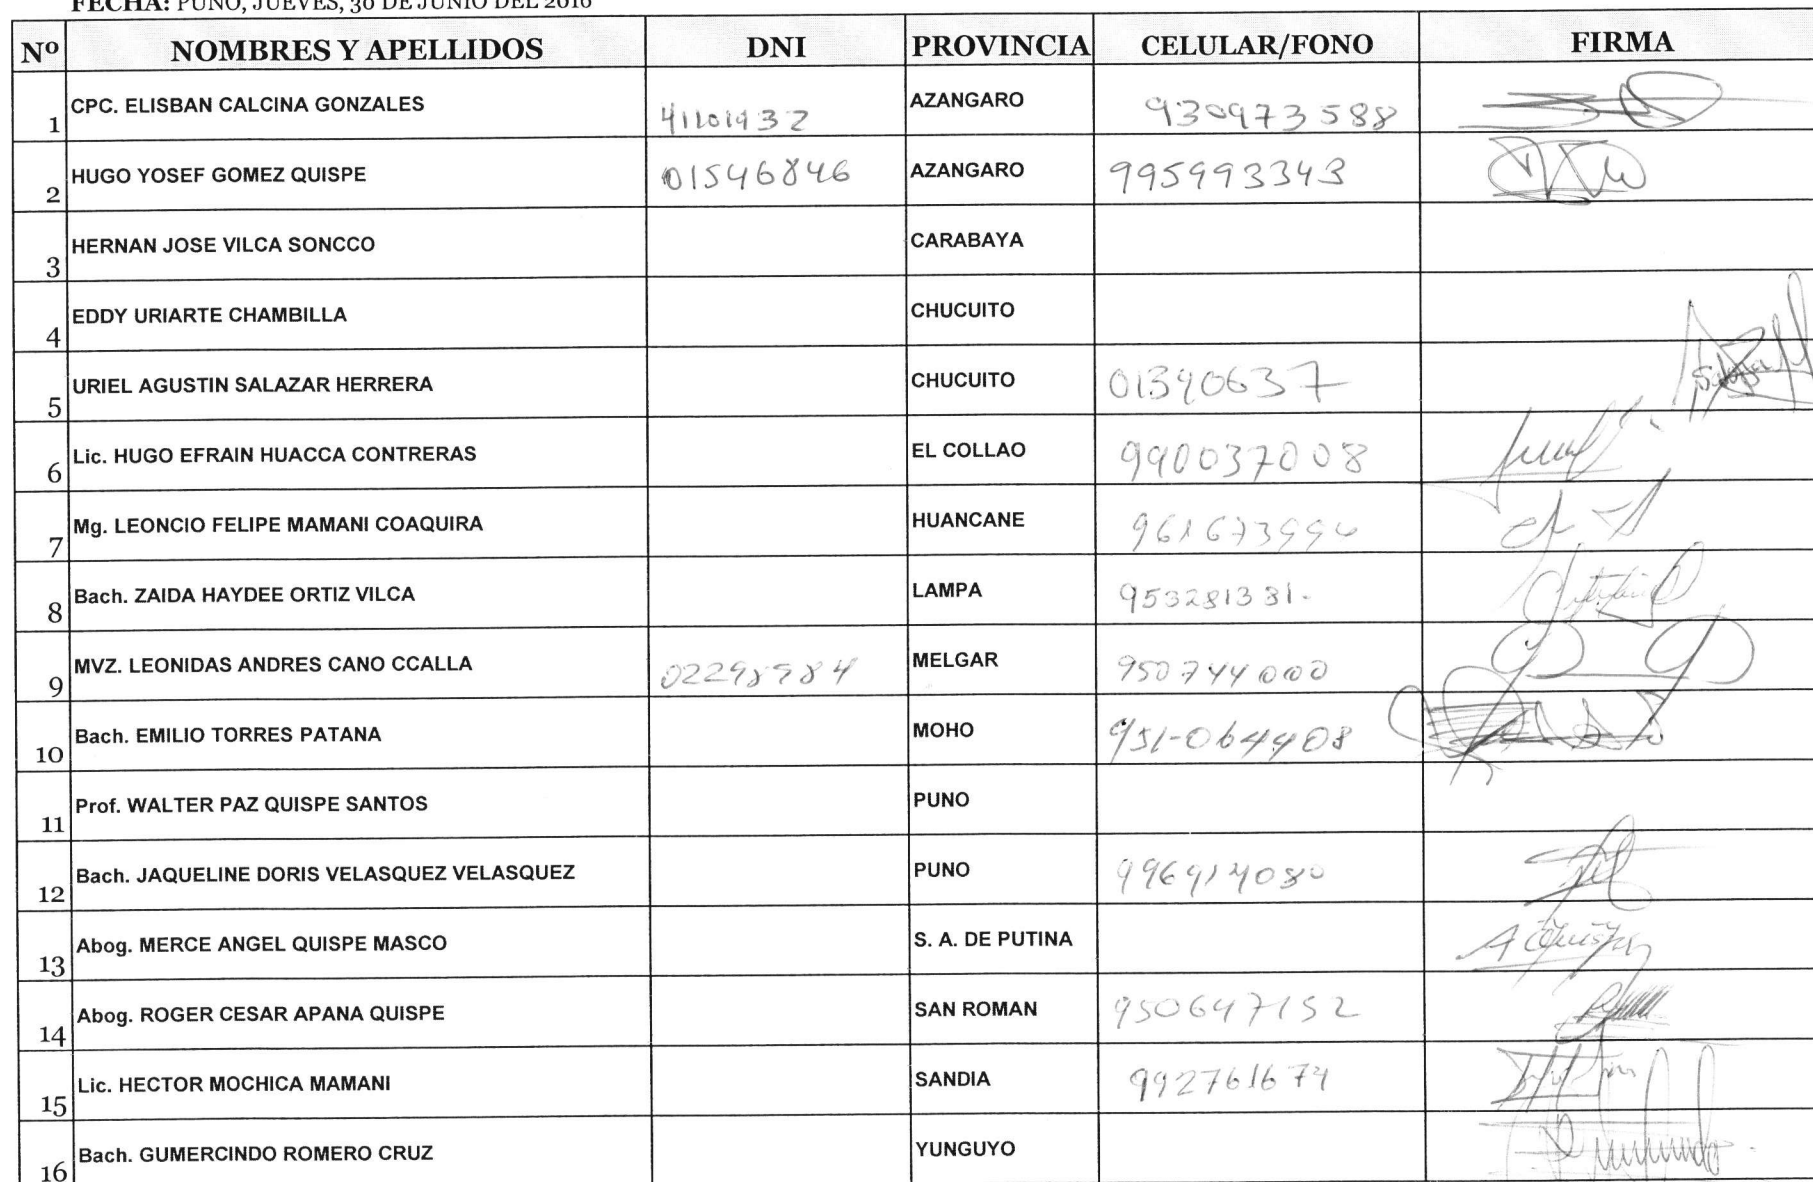 FECHA: PUNO, JUEVES, 30 DE JUNIO DEL 2016
Nº NOMBRES Y APELLIDOS DNI PROVINCIA CELULAR/FONO FIRMA
1 CPC. ELISBAN CALCINA GONZALES AZANGARO 930973588
2 HUGO YOSEF GOMEZ QUISPE 01546846 AZANGARO 995993343
3 HERNAN JOSE VILCA SONCCO CARABAYA
4 EDDY URIARTE CHAMBILLA CHUCUITO
5 URIEL AGUSTIN SALAZAR HERRERA CHUCUITO 01390637
6 Lic. HUGO EFRAIN HUACCA CONTRERAS EL COLLAO 990037008
7 Mg. LEONCIO FELIPE MAMANI COAQUIRA HUANCANE
8 Bach. ZAIDA HAYDEE ORTIZ VILCA LAMPA 953281381.
9 MVZ. LEONIDAS ANDRES CANO CCALLA MELGAR 950744000
10 Bach. EMILIO TORRES PATANA MOHO 951-064408
11 Prof. WALTER PAZ QUISPE SANTOS PUNO
12 Bach. JAQUELINE DORIS VELASQUEZ VELASQUEZ PUNO 996914080
13 Abog. MERCE ANGEL QUISPE MASCO S. A. DE PUTINA
14 Abog. ROGER CESAR APANA QUISPE SAN ROMAN 950647152
15 Lic. HECTOR MOCHICA MAMANI SANDIA 992761674
16 Bach. GUMERCINDO ROMERO CRUZ YUNGUYO